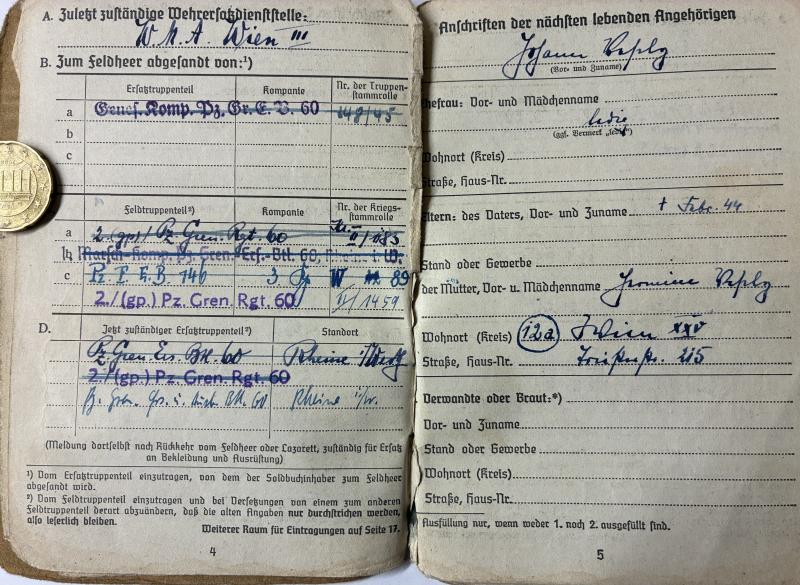 A. Zuletzt zuständige Wehrersatzdienststelle:
W. M. A. Wien III
B. Zum Feldheer abgesandt von:¹)
Ersatztruppenteil Kompanie Nr. der Truppenstammrolle
a Genes. Komp. Pz. Gr. E. B. 60 148/45
b
c
Feldtruppenteil²) Kompanie Nr. der Kriegsstammrolle
a 2. (gp) Pz. Gren. Rgt. 60
b Marsch-Komp. Pz. Gren. Ers.-Btl. 60, Rheine i. W.
c Pz F. E. B. 146 3 89
2./(gp.) Pz. Gren. Rgt. 60 II/1459
D. Jetzt zuständiger Ersatztruppenteil²) Standort
Pz. Gren. Ers. Btl. 60 Rheine i/Westf
2./(gp.) Pz. Gren. Rgt. 60
Pz. Gren. Ers. u. Ausb. Btl. 60 Rheine i/W.
(Meldung dortselbst nach Rückkehr vom Feldheer oder Lazarett, zuständig für Ersatz
an Bekleidung und Ausrüstung)
¹) Vom Ersatztruppenteil einzutragen, von dem der Soldbuchinhaber zum Feldheer
abgesandt wird.
²) Vom Feldtruppenteil einzutragen und bei Versetzungen von einem zum anderen
Feldtruppenteil derart abzuändern, daß die alten Angaben nur durchstrichen werden,
also leserlich bleiben.
Weiterer Raum für Eintragungen auf Seite 17.
4
Anschriften der nächsten lebenden Angehörigen
Johann
(Vor- und Zuname)
Ehefrau: Vor- und Mädchenname
(ggf. Vermerk „ledig")
Wohnort (Kreis)
Straße, Haus-Nr.
Eltern: des Vaters, Vor- und Zuname † Febr. 44
Stand oder Gewerbe
der Mutter, Vor- u. Mädchenname Hermine
Wohnort (Kreis) (12a) Wien XXV
Straße, Haus-Nr. 215
Verwandte oder Braut:*)
Vor- und Zuname
Stand oder Gewerbe
Wohnort (Kreis)
Straße, Haus-Nr.
Ausfüllung nur, wenn weder 1. noch 2. ausgefüllt sind.
5